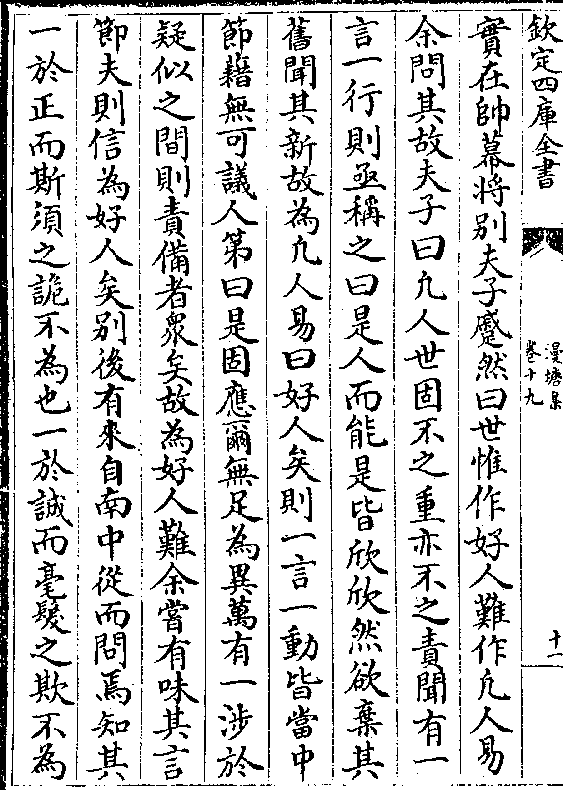 欽定四庫全書
漫塘集
卷十九
十一
實在帥幕将别夫子蹙然曰世惟作好人難作凢人易
余問其故夫子曰凢人世固不之重亦不之責聞有一
言一行則亟稱之曰是人而能是皆欣欣然欲棄其
舊聞其新故為凢人易曰好人矣則一言一動皆當中
節藉無可議人第曰是固應爾無足為異萬有一涉於
疑似之間則責備者衆矣故為好人難余嘗有味其言
節夫則信為好人矣别後有來自南中從而問焉知其
一於正而斯須之詭不為也一於誠而毫髮之欺不為